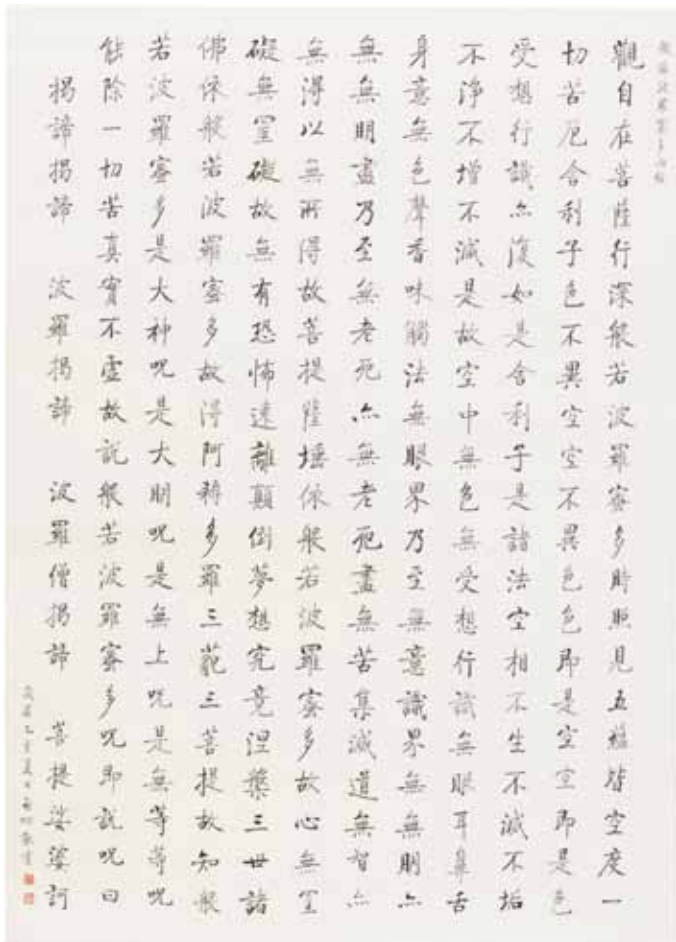 般若波羅蜜多心經
觀自在菩薩行深般若波羅蜜多時照見五蘊皆空度一
切苦厄舍利子色不異空空不異色色即是空空即是色
受想行識亦復如是舍利子是諸法空相不生不滅不垢
不淨不增不減是故空中無色無受想行識無眼耳鼻舌
身意無色聲香味觸法無眼界乃至無意識界無無明亦
無無明盡乃至無老死亦無老死盡無苦集滅道無智亦
無得以無所得故菩提薩埵依般若波羅蜜多故心無罣
礙無罣礙故無有恐怖遠離顛倒夢想究竟涅槃三世諸
佛依般若波羅蜜多故得阿耨多羅三藐三菩提故知般
若波羅蜜多是大神呪是大明呪是無上呪是無等等呪
能除一切苦真實不虛故說般若波羅蜜多呪即說呪曰
揭諦揭諦 波羅揭諦 波羅僧揭諦 菩提娑婆訶
乙亥夏日
敬書